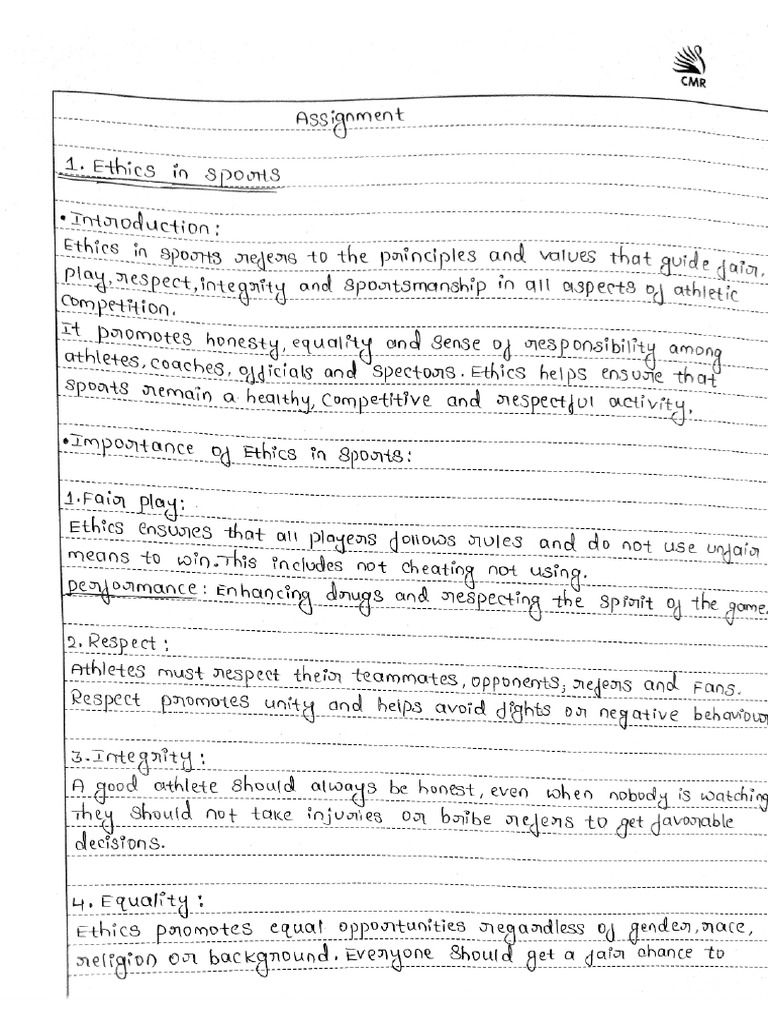 CMR
Assignment
1. Ethics in sports
• Introduction:
Ethics in sports refers to the principles and values that guide fair,
play, respect, integrity and sportsmanship in all aspects of athletic
competition.
It promotes honesty, equality and sense of responsibility among
athletes, coaches, officials and spectors. Ethics helps ensure that
sports remain a healthy, competitive and respectful activity.
• Importance of Ethics in sports:
1. Fair play:
Ethics ensures that all players follows rules and do not use unfair
means to win. This includes not cheating not using.
performance: Enhancing drugs and respecting the spirit of the game.
2. Respect:
Athletes must respect their teammates, opponents, refers and Fans.
Respect promotes unity and helps avoid fights or negative behaviour
3. Integrity:
A good athlete should always be honest, even when nobody is watching
They should not take injuries or bribe refers to get favorable
decisions.
4. Equality:
Ethics promotes equal opportunities regardless of gender, race,
religion or background. Everyone should get a fair chance to